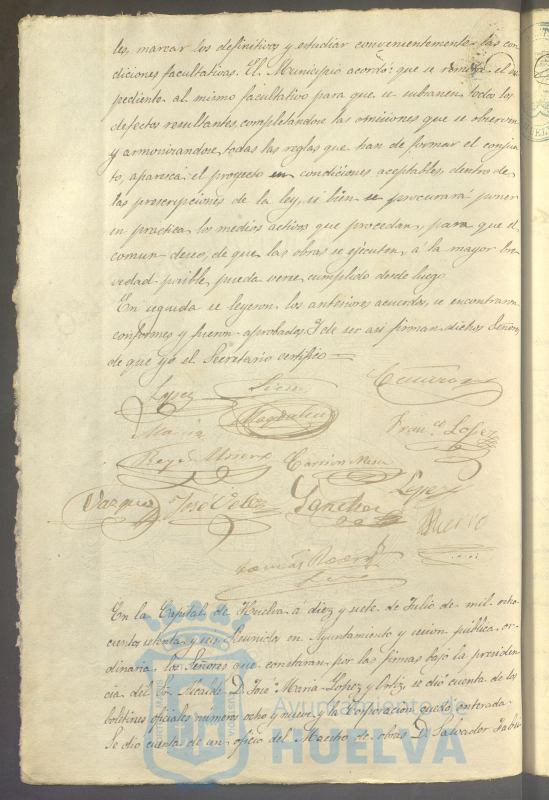 les, marcar los definitivos y estudiar convenientemente las con
diciones facultativas. El Municipio acordó: que se remita el ex
pediente al mismo facultativo para que se subsanen todos los
defectos resultantes, completándose las omisiones que se observen
y armonizandose todas las reglas que han de formar el conjun
to, aparezca el proyecto en condiciones aceptables, dentro de
las prescripciones de la ley, si bien se procurará poner
en practica los medios activos que procedan, para que el
comun deseo, de que las obras se ejecuten, á la mayor bre
vedad posible, pueda verse cumplido desde luego.
En seguida se leyeron los anteriores acuerdos, se encontraron
conformes y fueron aprobados. Y de ser asi firman dichos Señores
de que yo el Secretario certifico
Lopez
Magdalena
Franco Lopez
Garcia
Vazquez José Velez Sanchez Lopez
En la Capital de Huelva á diez y siete de Julio de mil ocho
cientos setenta y seis Reunidos en Ayuntamiento y sesion pública or
dinaria los Señores que constaran por las firmas bajo la presiden
cia del Sr. Alcalde D. José Maria Lopez y Ortiz, se dió cuenta de los
boletines oficiales números ocho y nueve y la Corporacion quedó enterada
Se dió cuenta de un oficio del Maestro de obras D. Salvador
Ayuntamiento de
HUELVA